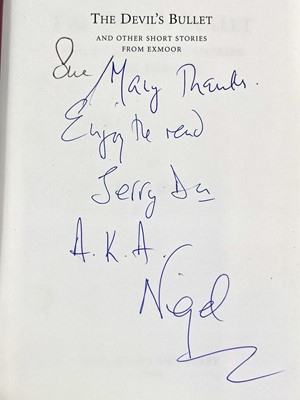 THE DEVIL'S BULLET
AND OTHER SHORT STORIES
FROM EXMOOR
Sue Many Thanks.
Enjoy the read
Jerry
A.K.A.
Nigel